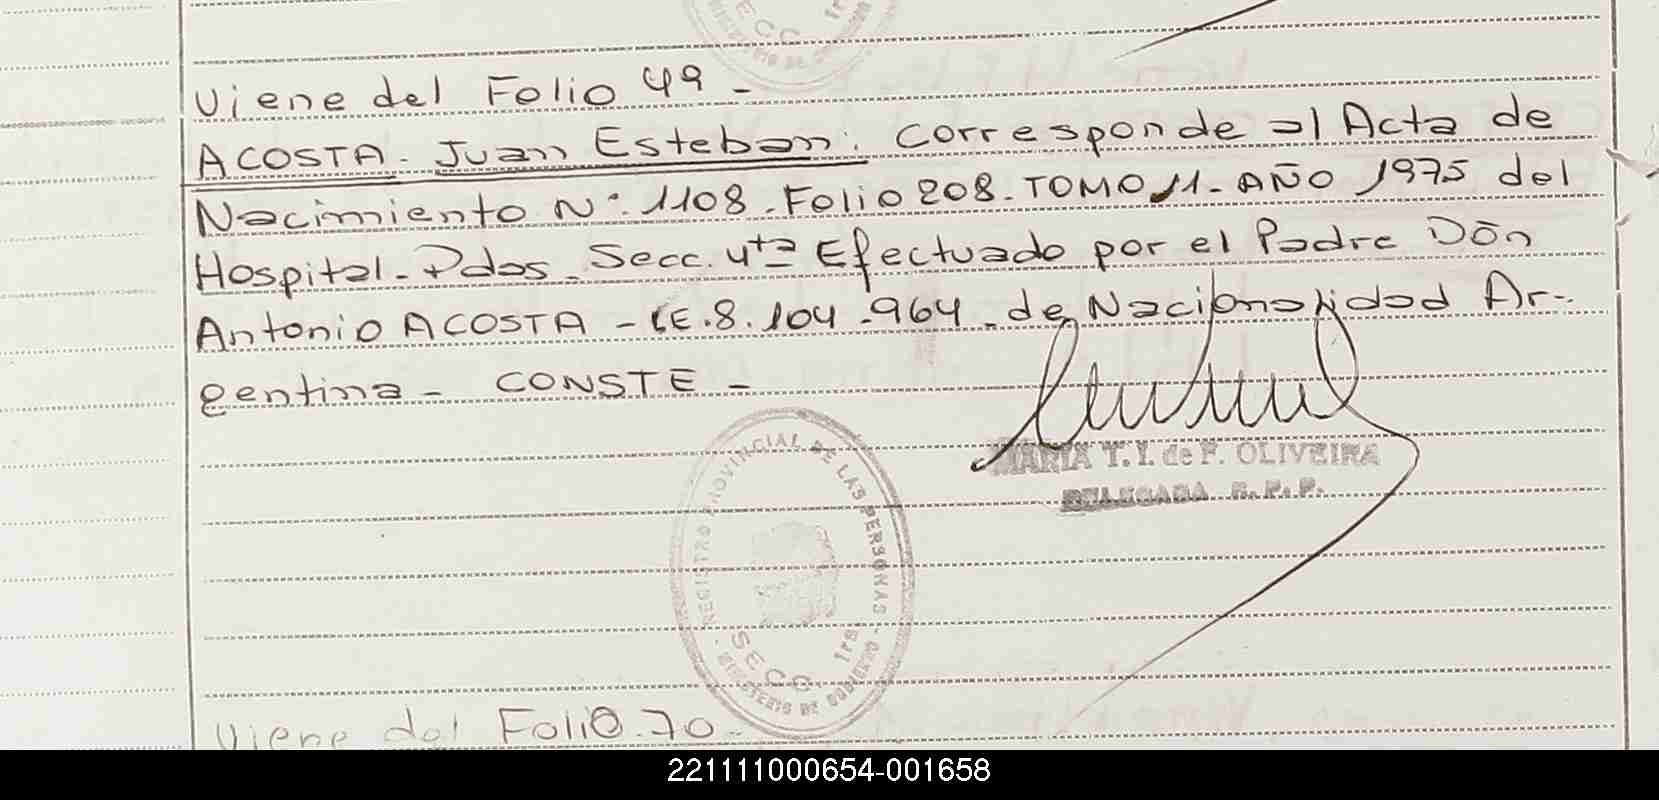 Viene del Folio 49 -
ACOSTA - Juan Esteban: corresponde al Acta de
Nacimiento N°. 1108 - Folio 208 - TOMO 11 - AÑO 1975 del
Hospital - Pdas - Secc. 4ta Efectuado por el Padre Dōn
Antonio ACOSTA - LE. 8.104.964 - de Nacionalidad Ar-
gentina - CONSTE -
MARIA T. I. de F. OLIVEIRA
DELEGADA R. P. P.
REGISTRO PROVINCIAL DE LAS PERSONAS
SECC. 1ra
MINISTERIO DE GOBIERNO
Viene del Folio 70 -
221111000654-001658